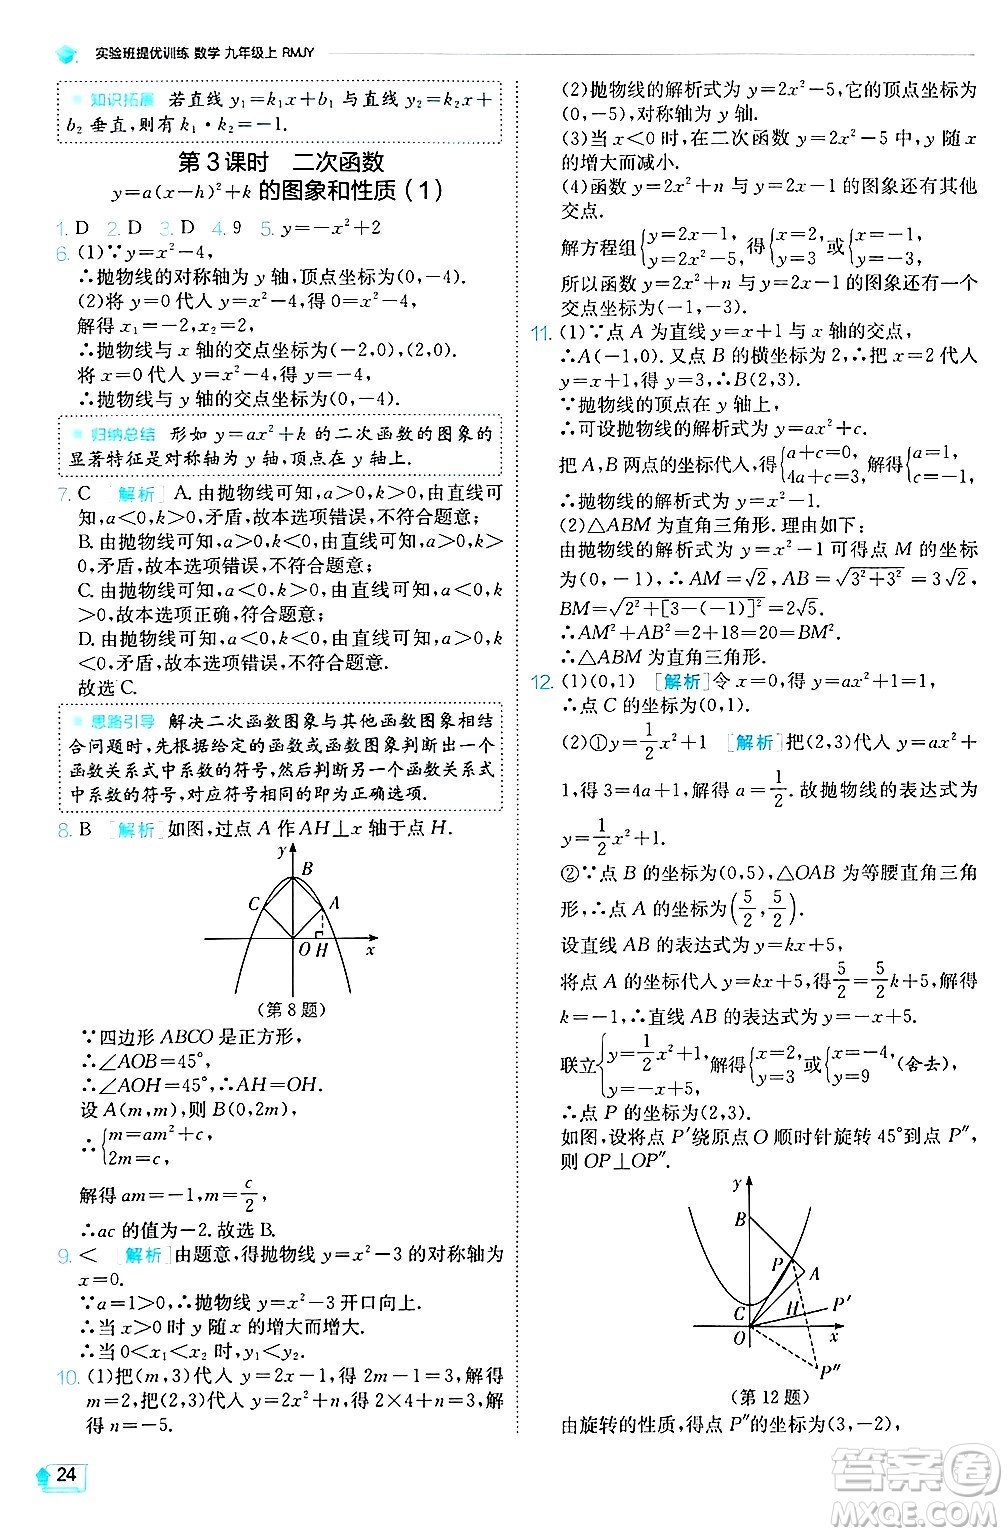 实验班提优训练 数学 九年级上 RMJY
知识拓展 若直线 y₁=k₁x+b₁ 与直线 y₂=k₂x+
b₂ 垂直,则有 k₁·k₂=-1.
第3课时 二次函数
y=a(x-h)²+k 的图象和性质(1)
1. D 2. D 3. D 4. 9 5. y=-x²+2
6. (1)∵y=x²-4,
∴抛物线的对称轴为 y 轴,顶点坐标为(0,-4).
(2)将 y=0 代人 y=x²-4,得 0=x²-4,
解得 x₁=-2,x₂=2,
∴抛物线与 x 轴的交点坐标为(-2,0),(2,0).
将 x=0 代人 y=x²-4,得 y=-4,
∴抛物线与 y 轴的交点坐标为(0,-4).
归纳总结 形如 y=ax²+k 的二次函数的图象的
显著特征是对称轴为 y 轴,顶点在 y 轴上.
7. C [解析] A. 由抛物线可知,a>0,由直线可
知,a<0,矛盾,故本选项错误,不符合题意;
B. 由抛物线可知,a>0,k<0,由直线可知,a>0,
k>0,矛盾,故本选项错误,不符合题意;
C. 由抛物线可知,a<0,k>0,由直线可知,a<0,
k>0,故本选项正确,符合题意;
D. 由抛物线可知,a<0,k<0,由直线可知,a<0,
k>0,矛盾,故本选项错误,不符合题意.
故选 C.
思路引导 解决二次函数图象与其他函数图象相结
合问题时,先根据给定的函数或函数图象判断出一个
函数关系式中系数的符号,然后判断出另一个函数关系式
中系数的符号,对应符号相同的即为正确选项.
8. B [解析]如图,过点 A 作 AH⊥x 轴于点 H.
y
B
C
A
O H x
(第 8 题)
∵四边形 ABCO 是正方形,
∴∠AOB=45°,
∴∠AOH=45°,∴AH=OH.
设 A(m,m),则 B(0,2m),
∴{m=am²+c,
2m=c,
解得 am=-1,m=c/2,
∴ac 的值为-2. 故选 B.
9. < [解析]由题意,得抛物线 y=x²-3 的对称轴为
x=0.
∵a=1>0,∴抛物线 y=x²-3 开口向上.
∴当 x>0 时 y 随 x 的增大而增大.
∴当 0<x₁<x₂ 时,y₁<y₂.
10. (1)把(m,3)代人 y=2x-1,得 2m-1=3,解得
m=2,把(2,3)代人 y=2x²+n,得 2×4+n=3,
解得 n=-5.
(2)抛物线的解析式为 y=2x²-5,顶点坐标为
(0,-5),对称轴为 y 轴.
(3)当 x<0 时,在二次函数 y=2x²-5 中,y 随 x
的增大而减小.
(4)函数 y=2x²+n 与 y=2x-1 的图象还有其他
交点.
解方程组{y=2x-1, y=2x²-5,得{x=2, y=3或{x=-1, y=-3,
所以函数 y=2x²+n 与 y=2x-1 的图象还有一个
交点坐标为(-1,-3).
11. (1)∵点 A 为直线 y=x+1 与 x 轴的交点,
∴A(-1,0). 又点 B 的横坐标为 2,∴把 x=2 代人
y=x+1,得 y=3,∴B(2,3).
∵抛物线的顶点在 y 轴上,
∴可设抛物线的解析式为 y=ax²+c.
把 A,B 两点的坐标代人,得{a+c=0, 4a+c=3,解得{a=1, c=-1,
∴抛物线的解析式为 y=x²-1.
(2)△ABM 为直角三角形. 理由如下:
由抛物线的解析式为 y=x²-1 可得点 M 的坐标
为(0,-1),∴AM=√2,AB=√(3²+3²)=3√2,
BM=√(2²+[3-(-1)]²)=2√5.
∴AM²+AB²=2+18=20=BM².
∴△ABM 为直角三角形.
12. (1)(0,1) [解析]令 x=0,得 y=ax²+1=1,
∴点 C 的坐标为(0,1).
(2)①y=1/2x²+1 [解析]把(2,3)代人 y=ax²+
1,得 3=4a+1,解得 a=1/2. 故抛物线的表达式为
y=1/2x²+1.
②∵点 B 的坐标为(0,5),△OAB 为等腰直角三角
形,∴点 A 的坐标为(5/2,5/2).
设直线 AB 的表达式为 y=kx+5,
将点 A 的坐标代人 y=kx+5,得5/2=5/2k+5,解得
k=-1,∴直线 AB 的表达式为 y=-x+5.
联立{y=1/2x²+1, y=-x+5,解得{x=2, y=3或{x=-4, y=9(舍去),
∴点 P 的坐标为(2,3).
如图,设将点 P′绕原点 O 顺时针旋转 45°到点 P″,
则 OP⊥OP″.
y
B
P
A
C
H P′
O x
P″
(第 12 题)
由旋转的性质,得点 P″的坐标为(3,-2),
24
答案圈
MXQE.COM